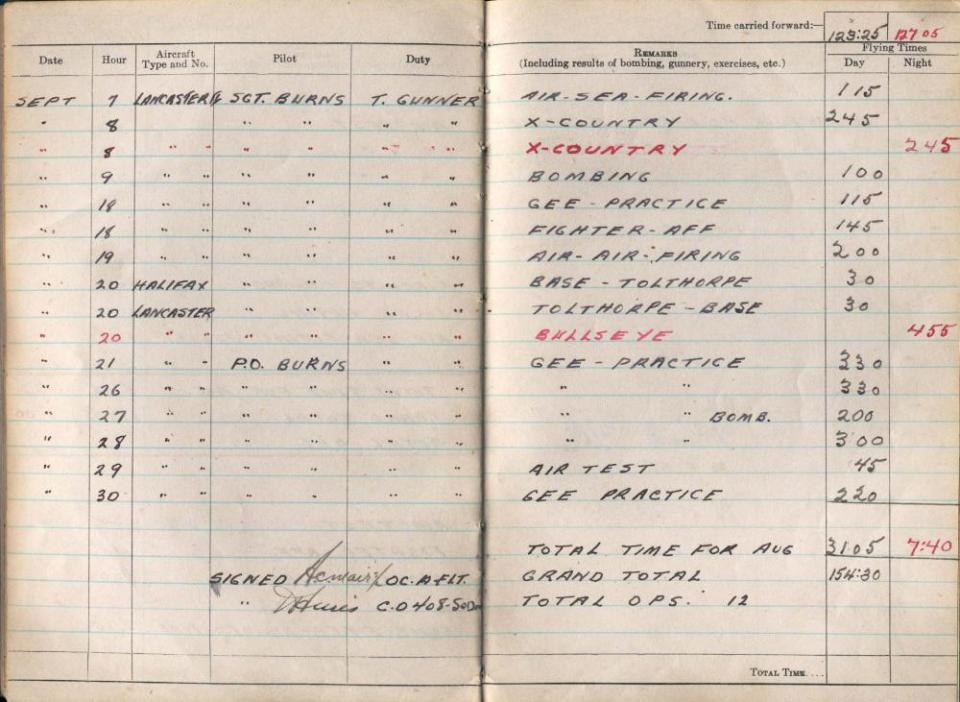 Time carried forward:— 123:25 127 05
Date Hour Aircraft Type and No. Pilot Duty REMARKS (Including results of bombing, gunnery, exercises, etc.) Flying Times Day Night
SEPT 7 LANCASTER SGT. BURNS T. GUNNER AIR-SEA-FIRING. 115
" 8 " " " " " X-COUNTRY 245
" 8 " " " " " " X-COUNTRY 245
" 9 " " " " " " BOMBING 100
" 18 " " " " " " GEE-PRACTICE 115
" 18 " " " " " " FIGHTER-AFF 145
" 19 " " " " " " AIR-AIR-FIRING 200
" 20 HALIFAX " " " " BASE - TOLTHORPE 30
" 20 LANCASTER " " " " TOLTHORPE - BASE 30
" 20 " " " " " " BULLSEYE 455
" 21 " " P.O. BURNS " " GEE-PRACTICE 330
" 26 " " " " " " " " 330
" 27 " " " " " " " " BOMB. 200
" 28 " " " " " " " " 300
" 29 " " " " " " AIR TEST 45
" 30 " " " " " " GEE PRACTICE 220
TOTAL TIME FOR AUG 31.05 7:40
SIGNED OC. A FLT. GRAND TOTAL 154:30
" C.O 408-SQDN TOTAL OPS. 12
TOTAL TIME....